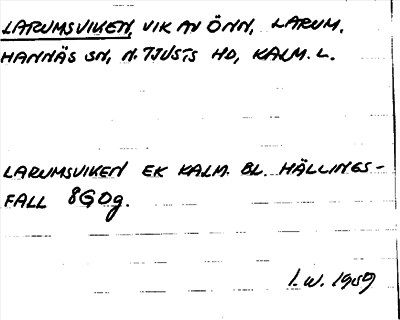 LARUMSVIKEN, VIK AV ÖNN, LARUM,
HANNÄS SN, N. TJUSTS HD, KALM. L.
LARUMSVIKEN EK KALM. BL. HÄLLINGS-
FALL 8G0g.
I.W. 1989